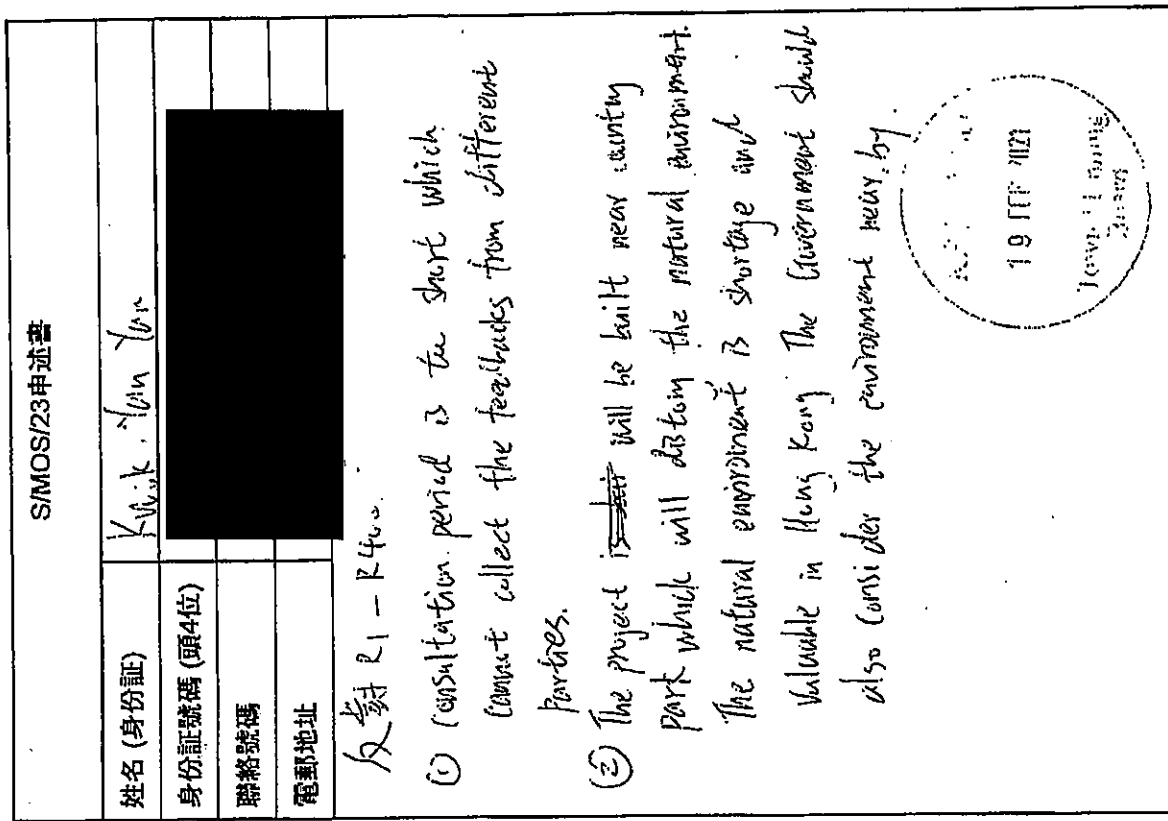 S/MOS/23申述書
姓名 (身份証)
Kwok Yan Yan
身份証號碼 (頭4位)
聯絡號碼
電郵地址
反對 R1 - R400
(1) Consultation period is too short which
cannot collect the feedbacks from different
parties.
(2) The project will be built near country
park which will distory the natural environment.
The natural environment is shortage and
valuable in Hong Kong The Government should
also consider the environment near by
19 FEB 2021
Town Planning